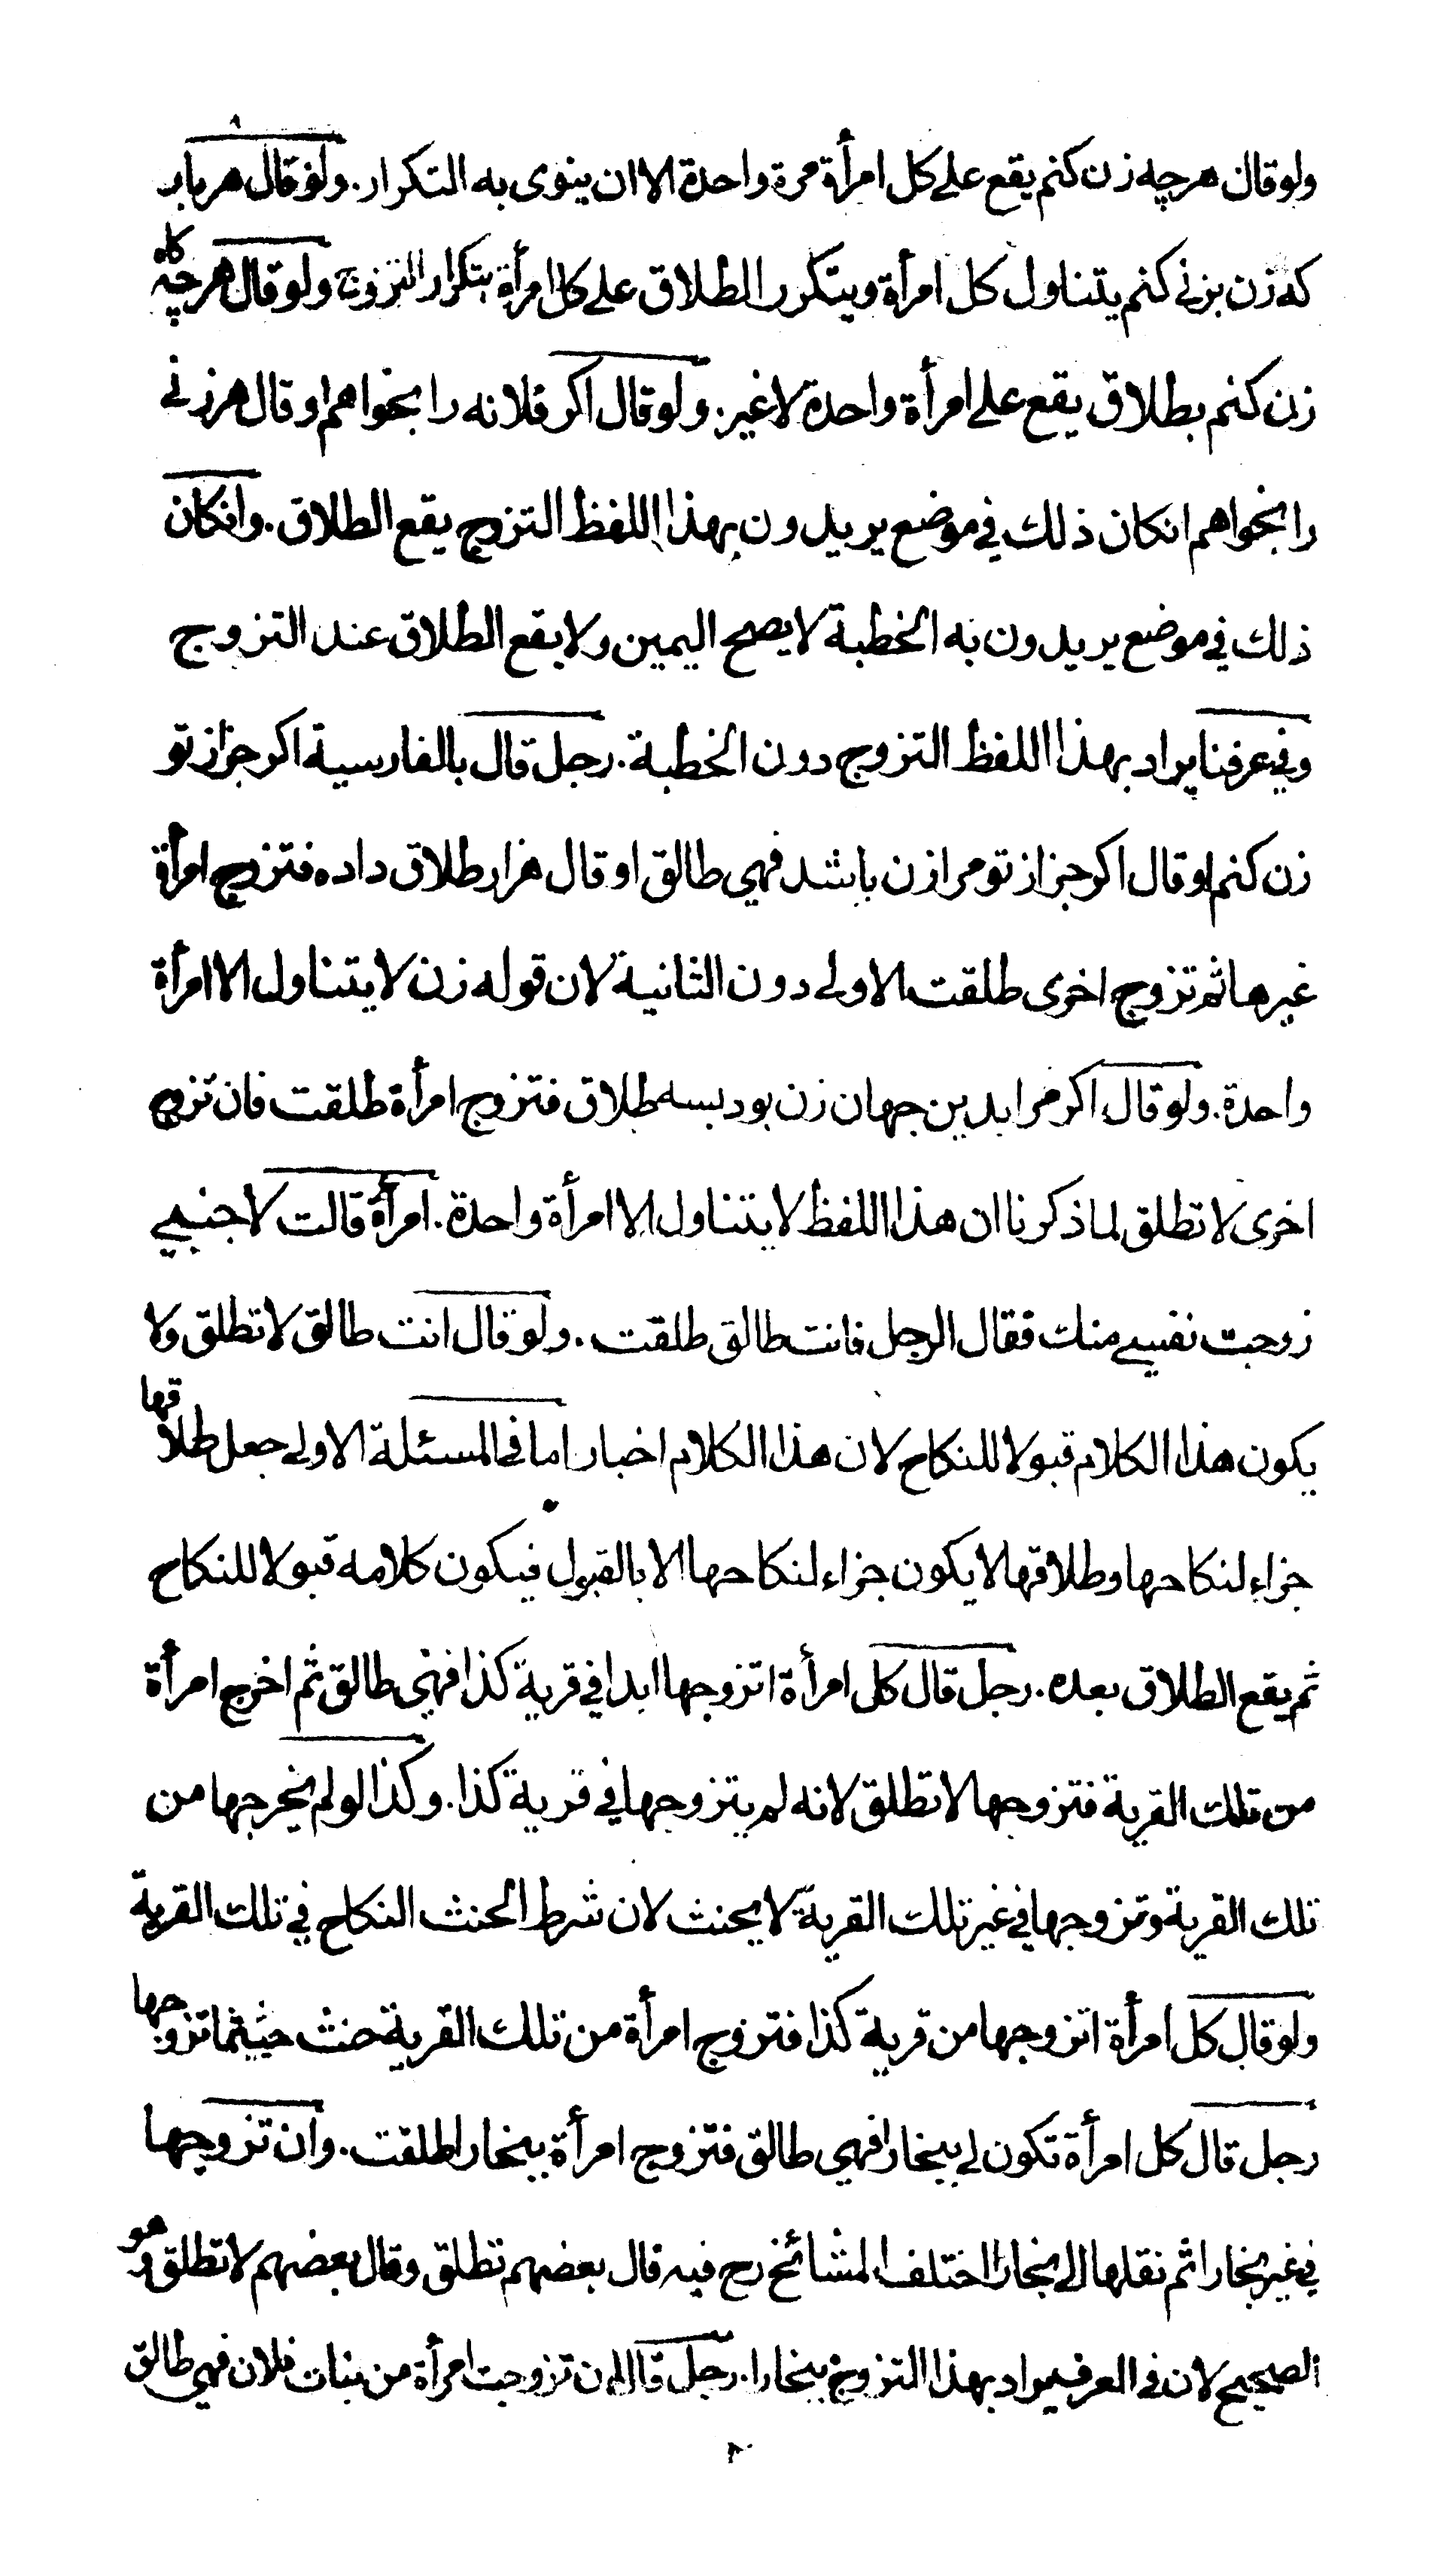 ولو قال هرچه زن كنم يقع على كل امرأة مرة واحدة الا ان ينوى به التكرار. ولو قال هر بار
كه زن بزنے كنم يتناول كل امرأة ويتكرر الطلاق على كل امرأة بتكرار التزوج ولو قال هرچه كاه
زن كنم بطلاق يقع على امرأة واحدة لا غير. ولو قال اكر فلانه را بخواهم او قال هر زنے
را بخواهم انكان ذلك في موضع يريدون بهذا اللفظ التزوج يقع الطلاق. وانكان
ذلك في موضع يريدون به الخطبة لا يصح اليمين ولا يقع الطلاق عند التزوج
وفي عرفنا يراد بهذا اللفظ التزوج دون الخطبة. رجل قال بالفارسية اكر جز از تو
زن كنم او قال اكر جز از تو مرا زن باشد فهي طالق او قال هزار طلاق داده فتزوج امرأة
غيرها ثم تزوج اخرى طلقت الاولى دون الثانية لان قوله زن لا يتناول الا امرأة
واحدة. ولو قال اكر مرا بدين جهان زن بود بسه طلاق فتزوج امرأة طلقت فان تزوج
اخرى لا تطلق لما ذكرنا ان هذا اللفظ لا يتناول الا امرأة واحدة. امرأة قالت لاجنبي
زوجت نفسي منك فقال الرجل فانت طالق طلقت. ولو قال انت طالق لا تطلق ولا
يكون هذا الكلام قبولا للنكاح لان هذا الكلام اخبار اما في المسئلة الاولى جعل طلاقها
جزاء لنكاحها وطلاقها لا يكون جزاء لنكاحها الا بالقبول فيكون كلامه قبولا للنكاح
ثم يقع الطلاق بعده. رجل قال كل امرأة اتزوجها ابدا في قرية كذا فهي طالق ثم اخرج امرأة
من تلك القرية فتزوجها لا تطلق لانه لم يتزوجها في قرية كذا. وكذا لو لم يخرجها من
تلك القرية وتزوجها في غير تلك القرية لا يحنث لان شرط الحنث النكاح في تلك القرية
ولو قال كل امرأة اتزوجها من قرية كذا فتزوج امرأة من تلك القرية حنث حيثما تزوجها
رجل قال كل امرأة تكون لي ببخارا فهي طالق فتزوج امرأة ببخارا طلقت. وان تزوجها
في غير بخارا ثم نقلها الى بخارا اختلف المشائخ رح فيه قال بعضهم تطلق وقال بعضهم لا تطلق وهو
الصحيح لان في العرف يراد بهذا التزوج ببخارا. رجل قال ان تزوجت امرأة من بنات فلان فهي طالق